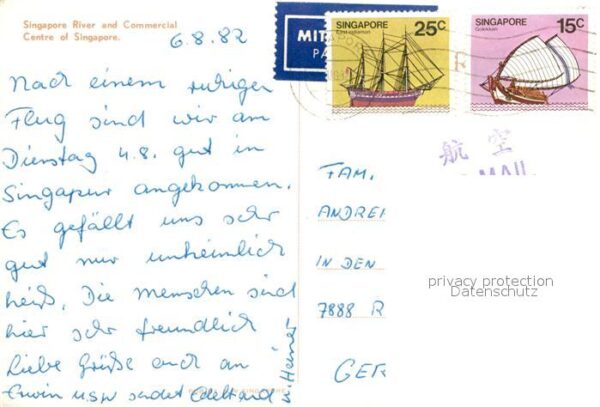 Singapore River and Commercial
Centre of Singapore.
6.8.82
Nach einem ruhigen
Flug sind wir am
Dienstag 4.8. gut in
Singapur angekommen.
Es gefällt uns sehr
gut nur unheimlich
heiß. Die Menschen sind
hier sehr freundlich
Liebe Grüße auch an
Erwin usw sendet Edeltraud
u. Heiner
MIT
PA
SINGAPORE 25c
East Indiaman
SINGAPORE 15c
R
航 空
MAIL
FAM.
ANDRE
IN DEN
7888 R
GER
privacy protection
Datenschutz